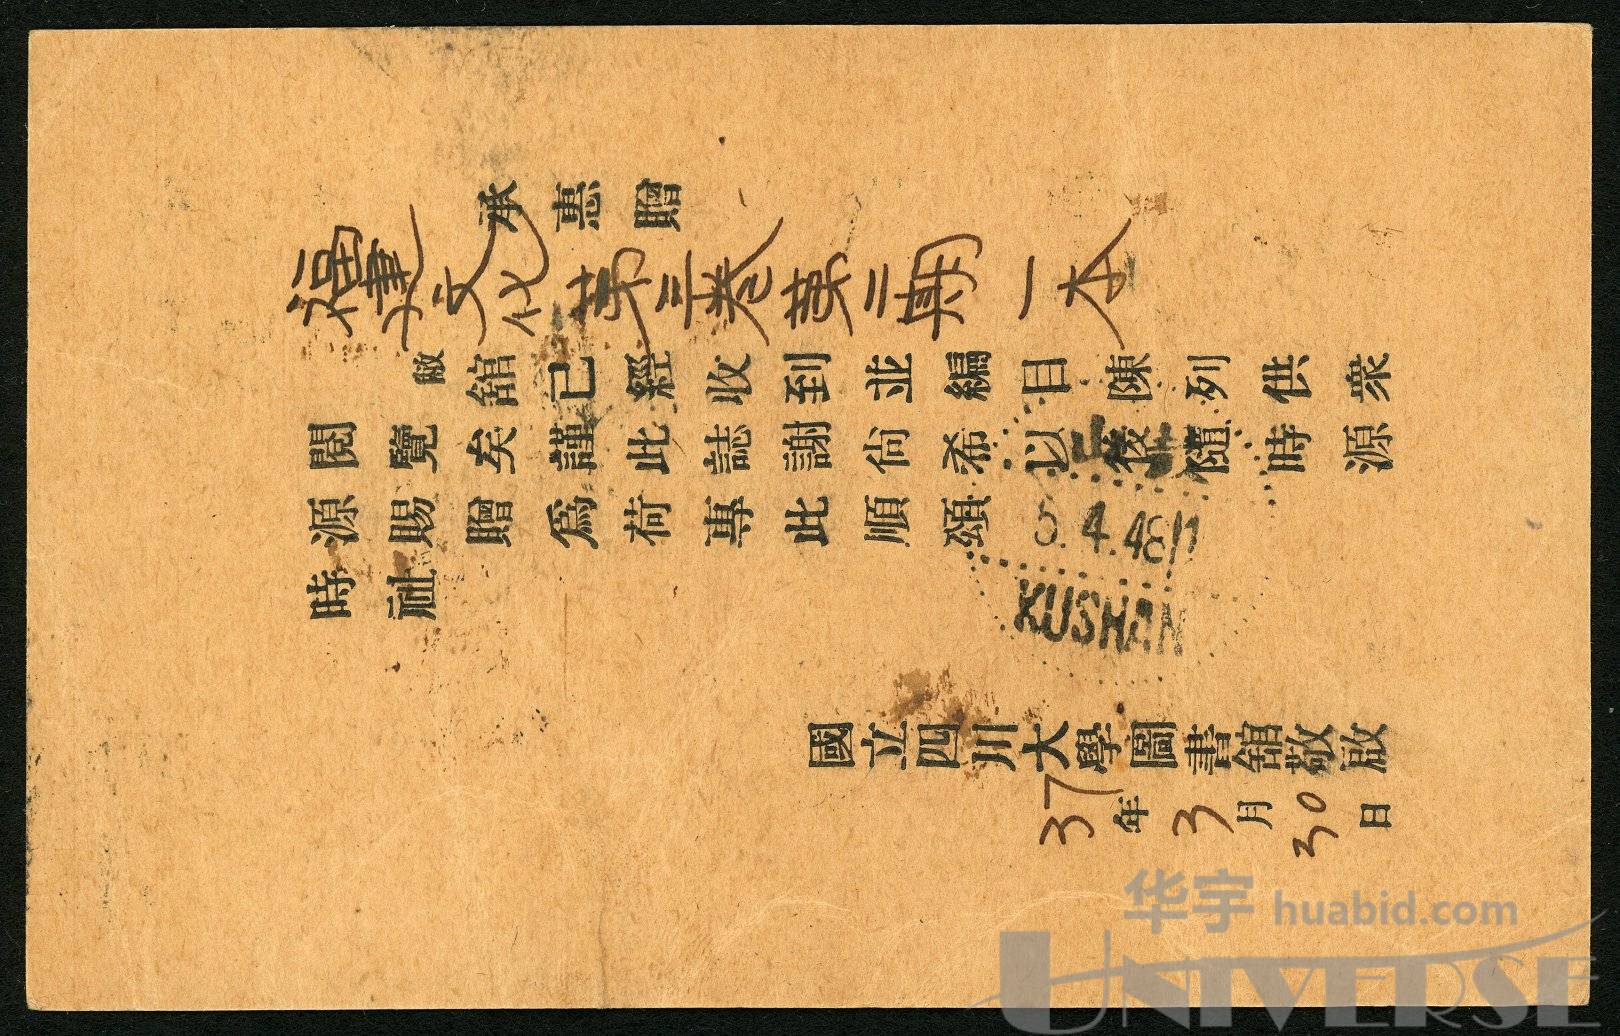 承惠贈
福建文化第三卷第二期一本
敝館已經收到並編目陳列供衆
閱覽矣謹此誌謝尙希以後隨時源
源賜贈爲荷專此順頌
時祉
國立四川大學圖書館敬啟
37年3月30日
4.48
KUSHAN
华宇 huabid.com
UNIVERSE